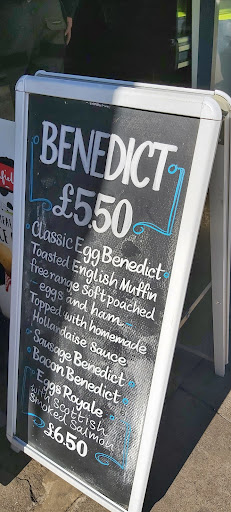 BENEDICT
£5.50
Classic Egg Benedict
Toasted English Muffin
free range soft poached
eggs and ham
Topped with homemade
Hollandaise sauce
Sausage Benedict
Bacon Benedict
Eggs Royale
with Scottish
smoked Salmon
£6.50